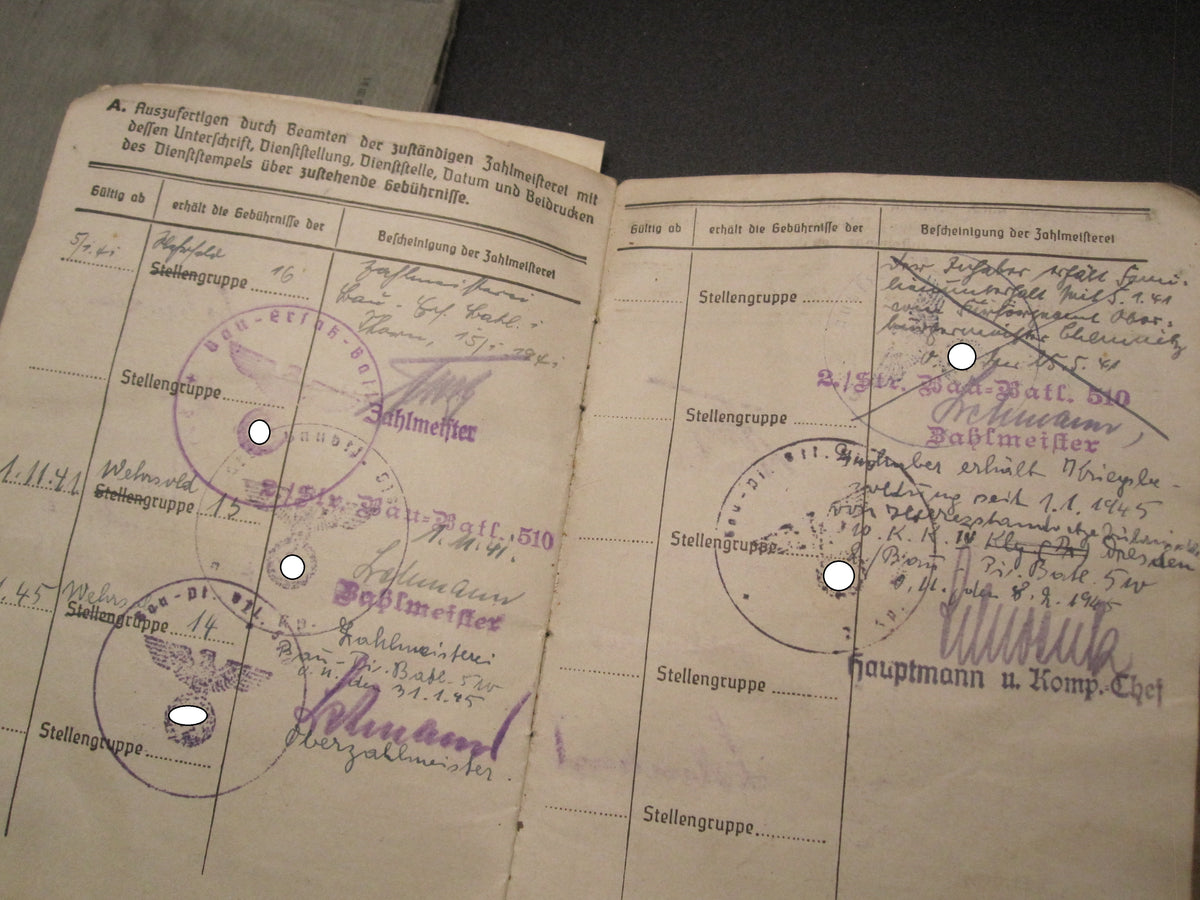 A. Auszufertigen durch Beamten der zuständigen Zahlmeisterei mit
dessen Unterschrift, Dienststellung, Dienststelle, Datum und Beidrucken
des Dienststempels über zustehende Gebührnisse.
Gültig ab
erhält die Gebührnisse der
Bescheinigung der Zahlmeisterei
Wehrsold
Stellengruppe 16
Zahlmeisterei
Bau-Ers. Batl.
Thorn, 15/1 1941
Bau-Ersatz-Batl
Stellengruppe
Zahlmeister
1.11.41
Wehrsold
Stellengruppe 15
2./Str. Bau-Batl. 510
1.11.41.
Lehmann
Zahlmeister
.45
Stellengruppe 14
Zahlmeisterei
Bau-Pi. Batl. 510
O.U., den 31.1.45
Lehmann
Oberzahlmeister.
Stellengruppe
Gültig ab
erhält die Gebührnisse der
Bescheinigung der Zahlmeisterei
Stellengruppe
Der Inhaber erhält Fami-
lienunterhalt seit 5.1.41
vom Fürsorgeamt Ober-
bürgermeister Chemnitz
15.5.41
2./Str. Bau-Batl. 510
Lehmann,
Zahlmeister
Stellengruppe
Inhaber erhält Kriegsbe-
soldung seit 1.1.1945
von
Dresden
Stellengruppe
2./Bau Pi. Batl. 510
O.U., den 8.2.1945
Hauptmann u. Komp.-Chef
Stellengruppe
Stellengruppe